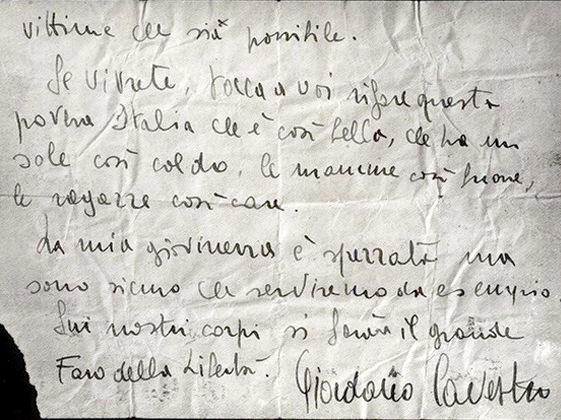 vittime che sia possibile.
Se vivrete, tocca a voi rifare questa
povera Italia che è così bella, che ha un
sole così caldo, le mamme così buone,
le ragazze così care.
La mia giovinezza è spezzata ma
sono sicuro che serviremo da esempio.
Sui nostri corpi si farà il grande
Faro della Libertà.
Giordano Cavestro